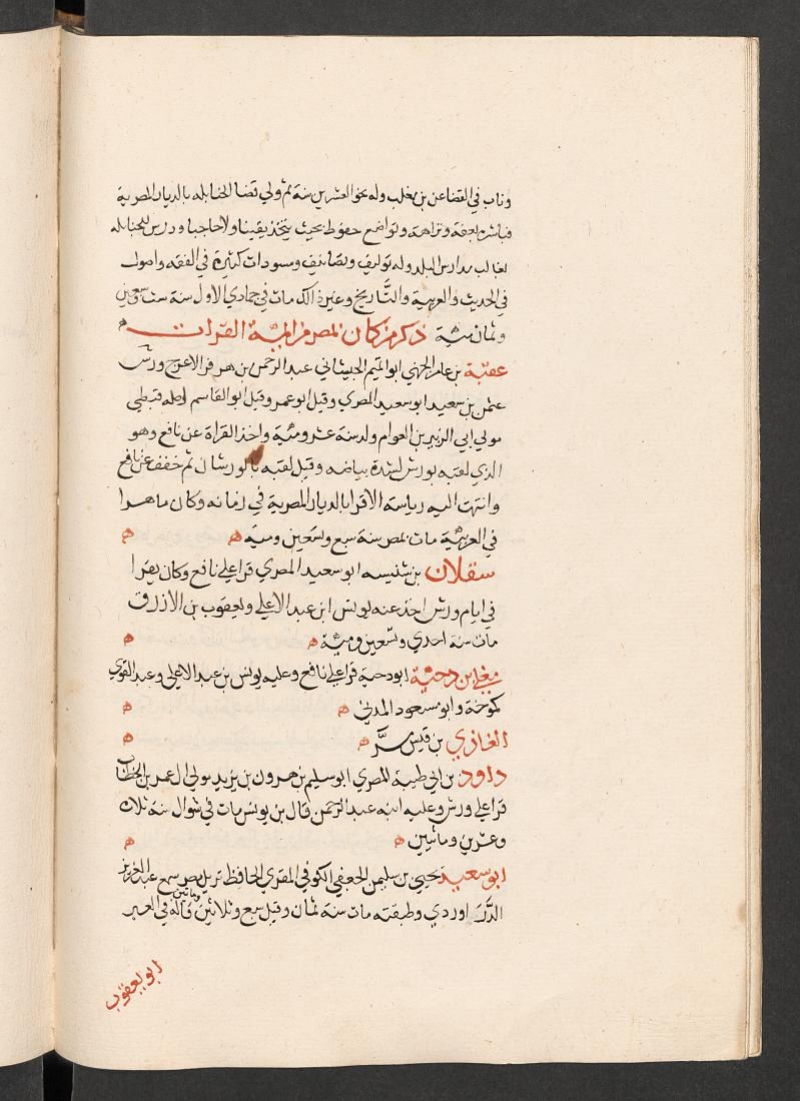 وناب في القضا عن بن مغلب وله نحو العشرين سنة ثم ولي قضا الحنابله بالديار المصرية
فباشره بعفة ونزاهة وتواضع بحيث يتخذ نقيبا ولا حاجبا ودرس للحنابله
بغالب مدارس البلد وله تواليف وتصانيف ومسودات كثيرة في الفقه واصوله
في الحديث والعربية والتاريخ وغير ذالك مات في جمادي الاول سنة ست وسبعين
وثمان مئية ذكر من كان بمصر من ايمة القرات
عقبة بن عامر الجهني ابو التميم الجيشاني عبد الرحمن بن هرمز الاعرج ورش
عثمن بن سعيد ابو سعيد المصري وقيل ابو عمر وقيل ابو القاسم اصله قبطي
مولي ابي الزبير بن العوام ولد سنة عشر ومئية واخذ القراة عن نافع وهو
الذي لقبه بورش لشدة بياضه وقيل لقبه بالورشان ثم خفف عن نافع
وانتهت اليه رياسة الاقرا بالديار المصرية في زمانه وكان ماهرا
في العربية مات بمصر سنة سبع وتسعين ومية ه ه
سقلان بن شنيسه ابو سعيد المصري قرا علي نافع وكان يقرا
في ايام ورش اخذ عنه يونس ابن عبد الاعلي ويعقوب بن الازرق
مات سنة احدي وتسعين ومئية ه ه
معلي بن دحية ابو دحية قرا علي نافع وعليه يونس بن عبد الاعلي وعبد القوي
كمونة وابو مسعود المدني ه ه
الغازي بن قيس مرَّ ه ه
داود بن ابي طيبة المصري ابو سليم بن هرون بن يزيد مولي ال عمر بن الخطاب
قرا علي ورش وعليه ابنه عبد الرحمن قال بن يونس مات في شوال سنة ثلاث
وعشرين ومائتين ه ه
ابو سعيد يحيي بن سليمن الجعفي الكوفي المقري الحافظ نزيل مصر سمع عبد العزيز
الدَّرَاوردي وطبقته مات سنة ثمان وقيل سبع وثلاثين ومائتين قاله في العبر
ابو يعقوب